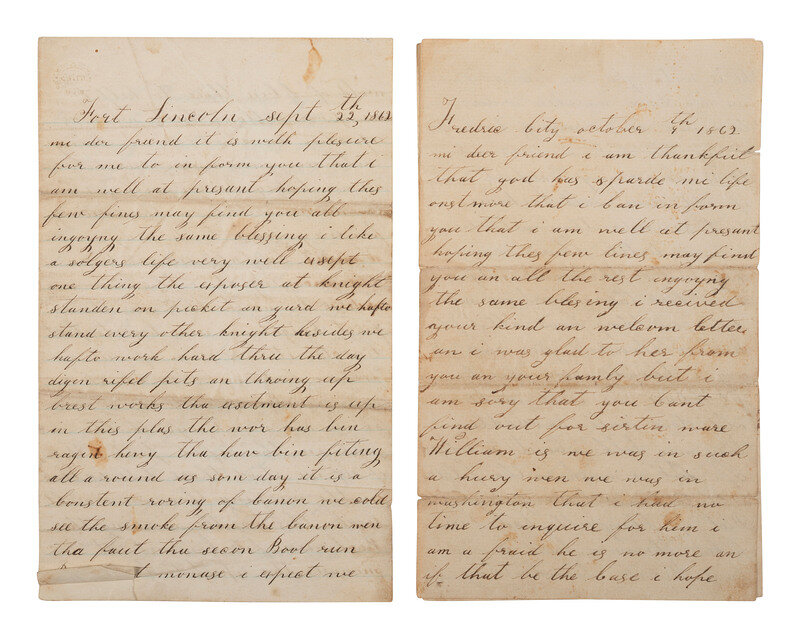 Fort Lincoln sept 22th, 1862
mi der friend it is with plesure
for me to in form you that i
am well at presant hoping thes
few fines may find you all
ingoyng the same blessing i like
a solgers life very well exsept
one thing the exposer at knight
standen on picket an gard we hafto
stand every other knight besides we
hafto work hard thru the day
digen rifel pits an throing up
brest works tha exsitment is up
in this plas the wor has bin
ragin hevy tha hav bin fiting
all a round us som day it is a
constent roring of canon we cold
see the smoke from the canon wen
tha faut tha secon Bool run
monase i expect we
Fredric City october 9th 1862
mi deer friend i am thankful
that god has sparde mi life
onst more that i can in form
you that i am well at presant
hoping thes few lines may find
you an all the rest ingoyng
the same blesing i recived
your kind an welcom letter
an i was glad to her from
you an your famly but i
am sory that you cant
find out for sirtin ware
William is we was in such
a hury wen we was in
washington that i had no
time to inquire for him i
am a fraid he is no more an
if that be the case i hope